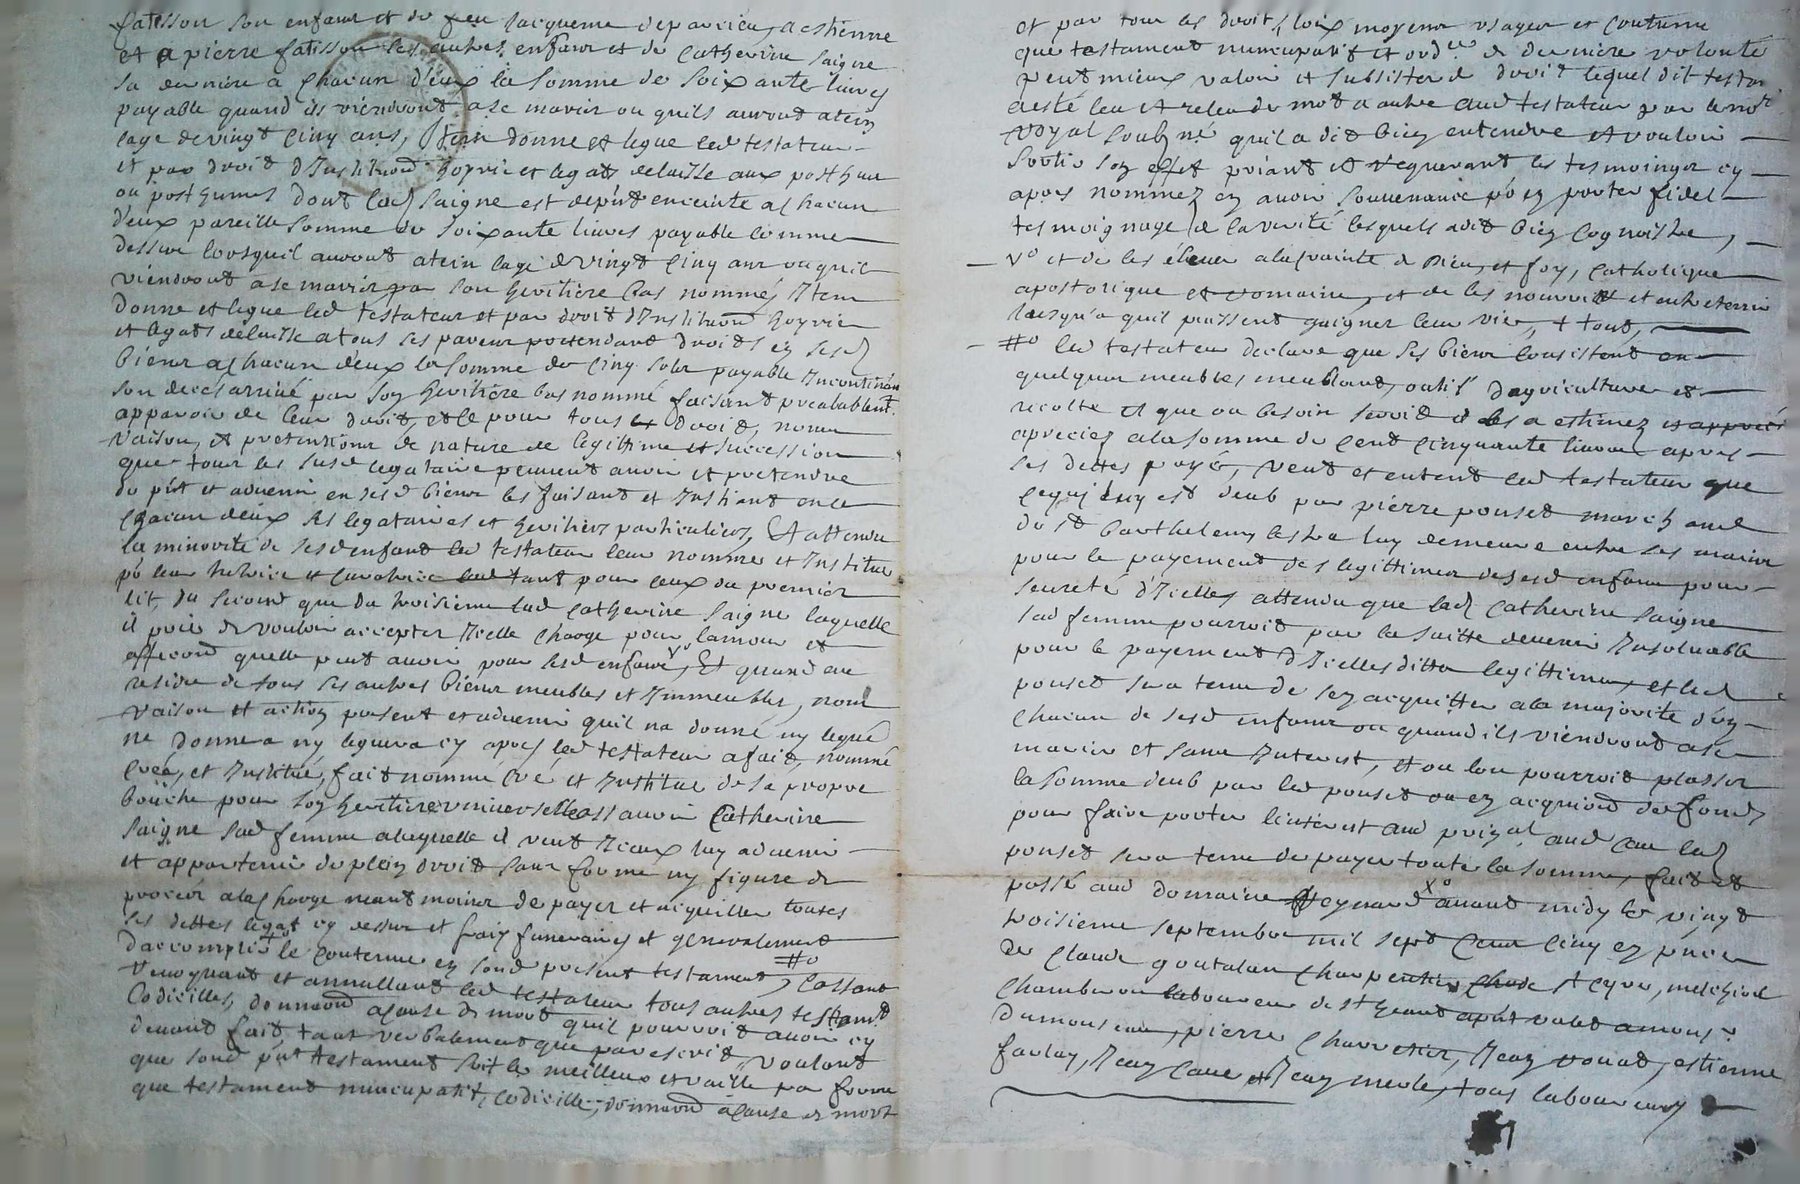 fatisson son enfant et de feu Jacqueme deparcieu, a estienne
et a pierre fatisson ses autres enfans et de Catherine Saigne
sa derniere a chacun d'eux la somme de soixante livres
payable quand ils viendront a se marier ou quils auront atein
lage de vingt cinq ans, Item donne et legue led testateur
et par droit d'Institu͠on hoyrie et legats delaisse aux posthume
ou posthumes dont lad Saigne est de pn̄t enceinte a chacun
d'eux pareille somme de soixante livres payable comme
dessus lorsquil auront atein lage de vingt cinq ans ou quil
viendront a se marier par son heritiere bas nommée, Item
donne et legue led testateur et par droit d'Institu͠on hoyrie
et legats delaisse a tous ses parens pretendant droits en sesd
biens a chacun d'eux la somme de cinq sols payable Incontinan
son deces arrivé par son heritiere bas nommé faisant prealablemt.
apparoir de leur droit, et ce pour tous droits, noms
raisons, et pretentions de nature de legittime et succession
que tous les susd legataire peuvent avoir et pretendre
du pn̄t et advenir en sesd biens les faisant et Instituant en ce
chacun deux ses legataires et heritiers particuliers, Et attendu
la minorité de sesd enfans led testateur leur nomme et Institue
po leur tutrice et curatrice tant pour ceux du premier
lit, du second que du troisieme lad Catherine Saigne laquelle
il prie de vouloir accepter Icelle charge pour lamour et
affection quelle peut avoir pour sesd enfans, vo Et quand au
residu de tous ses autres biens meubles et Immeubles, noms
raison et action present et advenir quil na donné ny legué
ne donnera ny leguera cy apres led testateur a fait, nommé
creé, et Institué, fait nomme cré et Institue de sa propre
bouche pour son heritiere universelle assavoir Catherine
Saigne sad femme a laquelle il veut Iceux luy advenir
et appartenir de plein droit sans forme ny figure de
proces a la charge neant moins de payer et acquitter toutes
ses dettes legat cy dessus et frais funeraires et generalement
daccomplir le contenu en sond present testament, #o Cassant
revoquant et annullant led testateur tous autres testamt
Codicilles, donna͠on a cause de mort quil pourroit avoir cy
devant fait, tant verbalement que par escrit, voulant
que sond pn̄t testament soit le meilleur et vaille par forme
que testament nuncupatif, Codicille, donna͠on a cause de mort
et par tous les droits, loix moyens usages et coutume
que testament nuncupatif et ordce de derniere volonté
peut mieux valoir et subsister de droit lequel dit testant
a esté leu et releu de mot a autre aud testateur par le nore
royal soubsné quil a dit bien entendre et vouloir
sortir son effet priant et requerant les tesmoings cy
apres nommez en avoir souvenance po en porter fidel
tesmoignage de la verité lesquels a dit bien cognoistre,
vo et de les élever a la crainte de Dieu et foy, catholique
apostolique et romaine, et de les nourrir et entretenir
jusqu'a quil puissent gaigner leur vie, + tout,
#o led testateur declare que ses biens consistent en
quelques meubles meublant, outils d'agriculture et
recolte et que au besoin seroit il les a estimez et appreciés
apreciez a la somme de cent cinquante livres apres
ses dettes payés, veut et entend led testateur que
ce qui luy est deub par pierre ponset marchand
de st Barthelemy lestra luy demeure entre les mains
pour le payement des legittimes de sesd enfans pour
seureté d'Icelles attendu que lad Catherine Saigne
sad femme pourroit par la suitte devenir Insolvable
pour le payement d'Icelles ditte legittimes, et led
ponset sera tenu de sen acquitter a la majorité d'un
chacun de sesd enfans ou quand ils viendront a se
marier et sans Interest, et ou lon pourroit plasser
la somme deub par led ponset ou en acquerir des fonds
pour faire porter linterest aud principal aud cas led
ponset sera tenu de payer toute la somme, fait et
passé aud domaine Peynard avant midy le vingt
troisieme septembre mil sept cens cinq en pn̄ce
de Claude goutalan charpentier st Cyre, melchiol
Chamberon laboureur de st Geand valet a monsr
Dumousceau, pierre Charretier, Jean rouat, estienne
farlay, Jean Cave et Jean merle, tous laboureurs